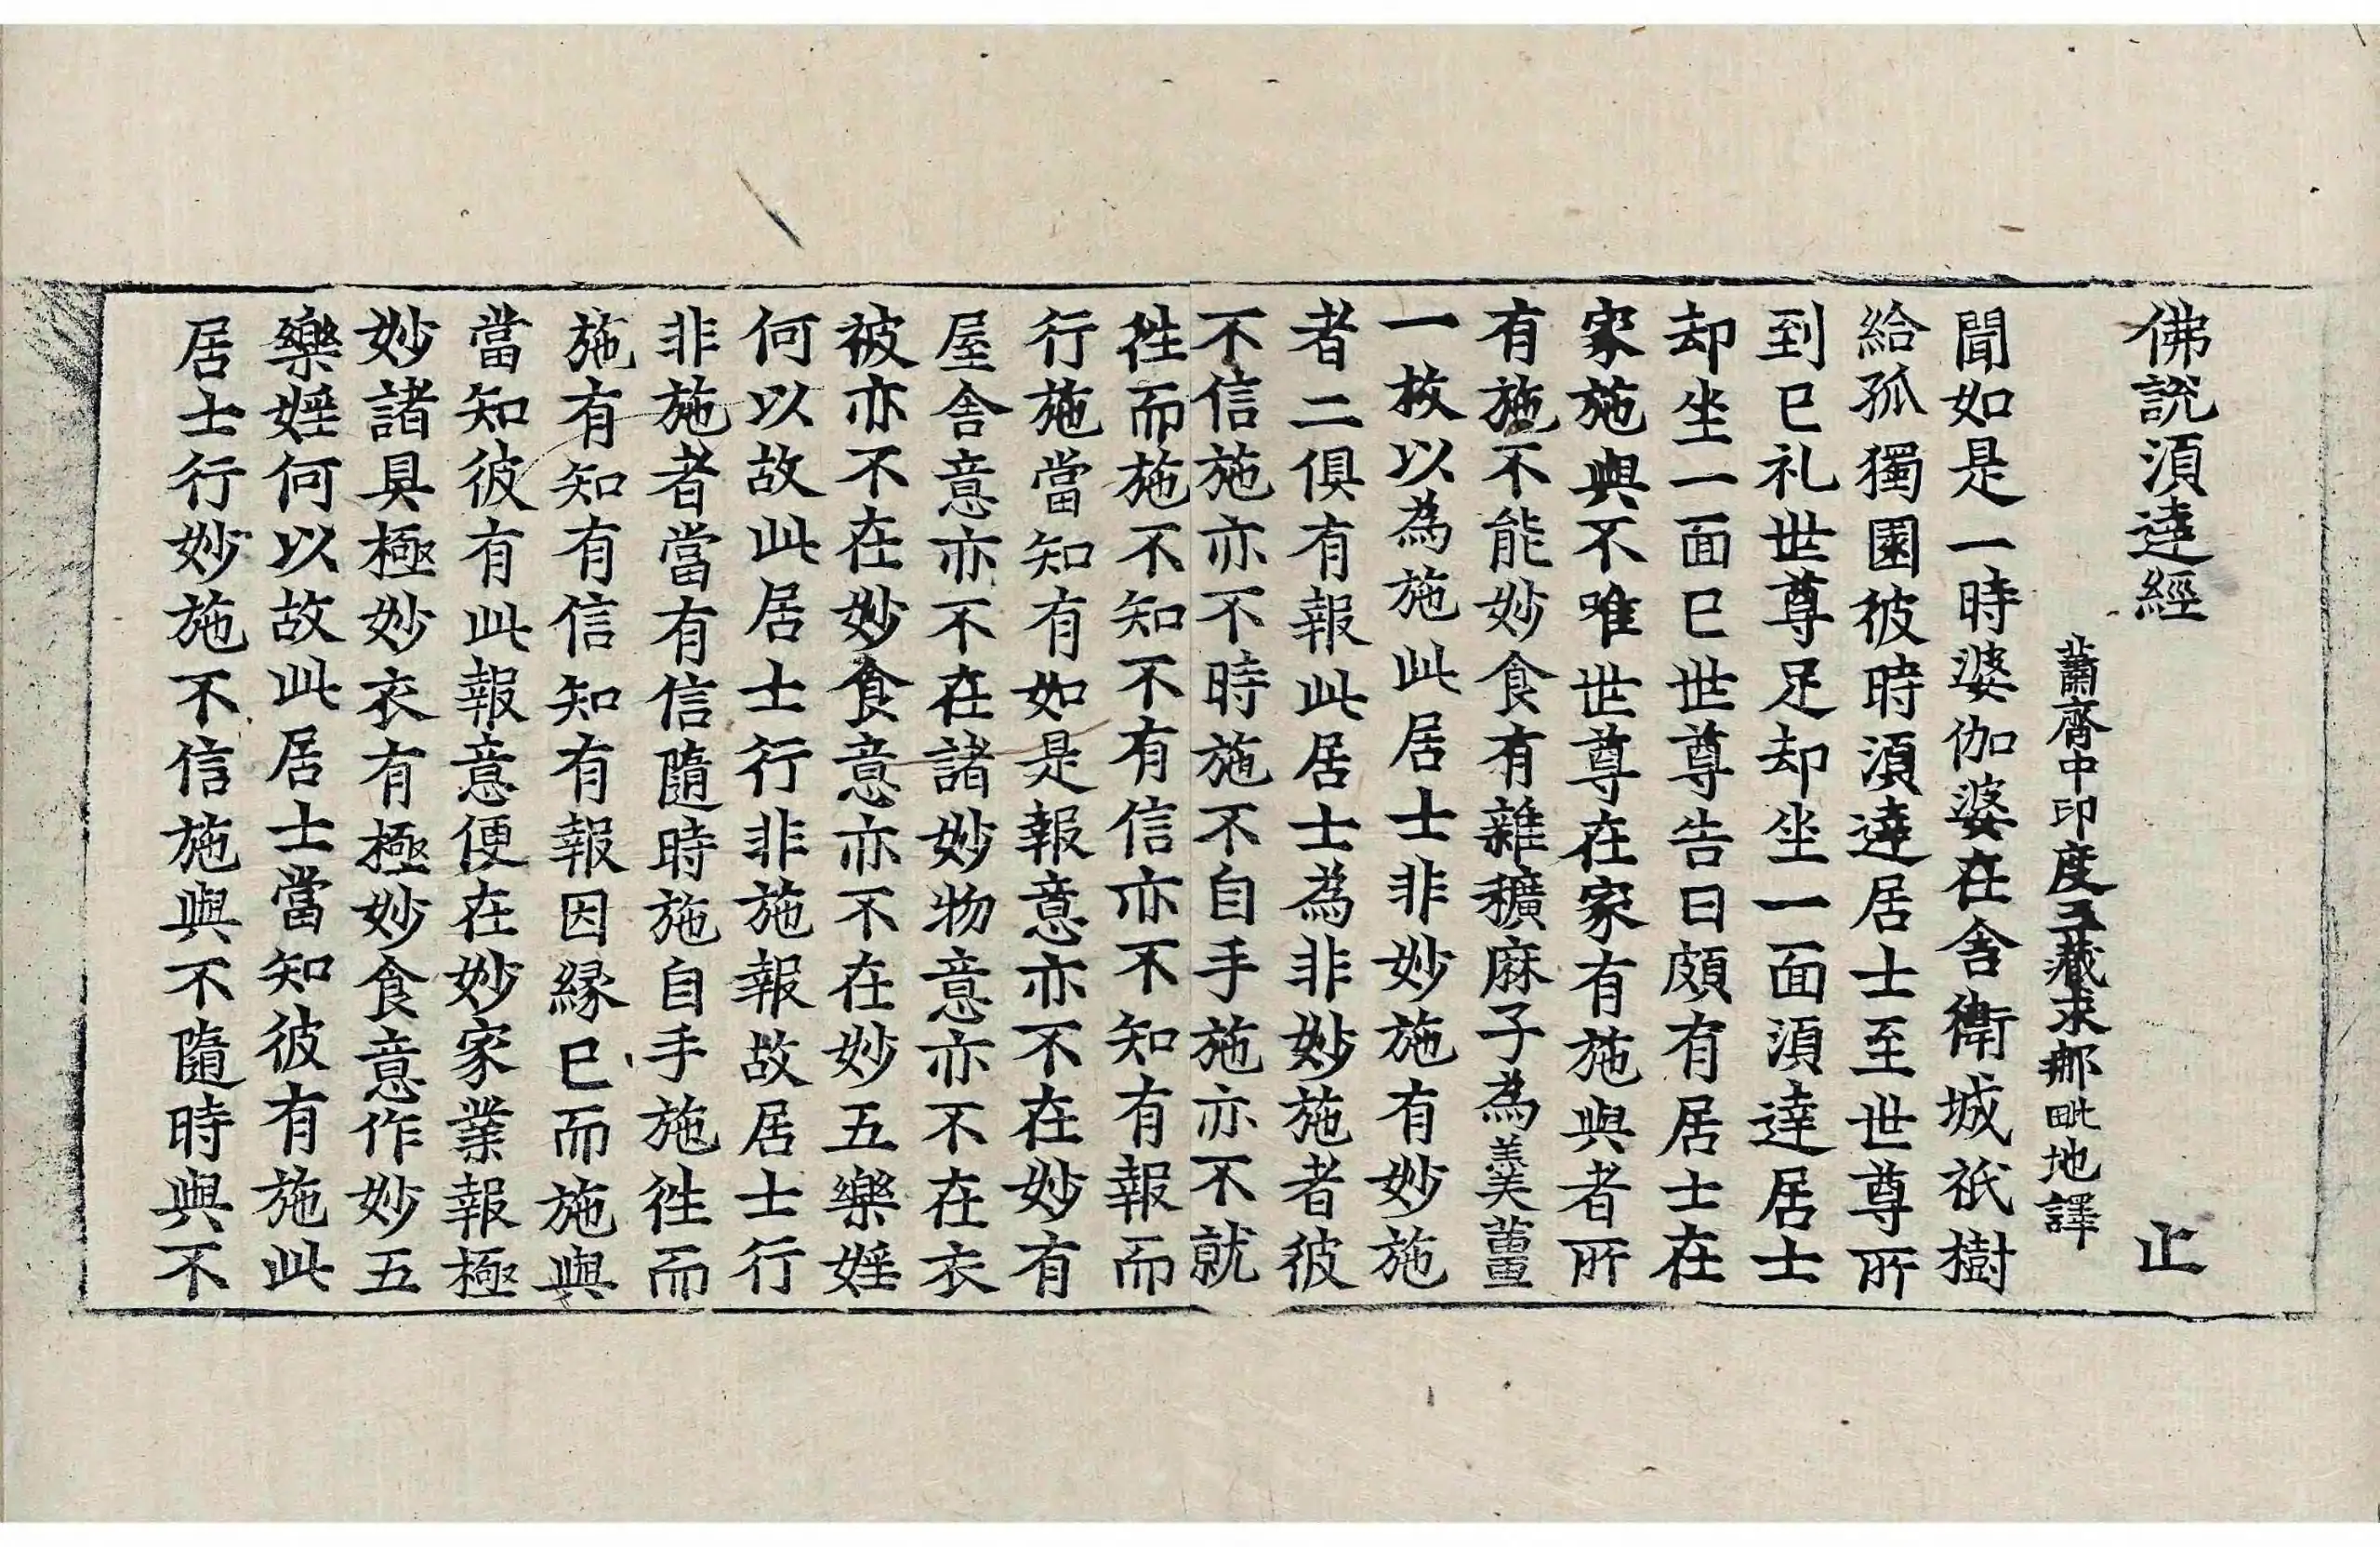 佛說湏逹經 止
蕭齊中印度三藏求那毗地譯
聞如是一時婆伽婆在舍衛城祇樹
給孤獨園彼時湏逹居士至世尊所
到已礼世尊足却坐一面湏逹居士
却坐一面已世尊告曰頗有居士在
家施與不唯世尊在家有施與者所
有施不能妙食有雜穬麻子為羹薑
一枚以為施此居士非妙施有妙施
者二俱有報此居士為非妙施者彼
不信施亦不時施不自手施亦不就
徃而施不知不有信亦不知有報而
行施當知有如是報意亦不在妙有
屋舍意亦不在諸妙物意亦不在衣
被亦不在妙食意亦不在妙五樂婬
何以故此居士行非施報故居士行
非施者當有信隨時施自手施徃而
施有知有信知有報因緣已而施與
當知彼有此報意便在妙家業報極
妙諸具極妙衣有極妙食意作妙五
樂婬何以故此居士當知彼有施此
居士行妙施不信施與不隨時與不